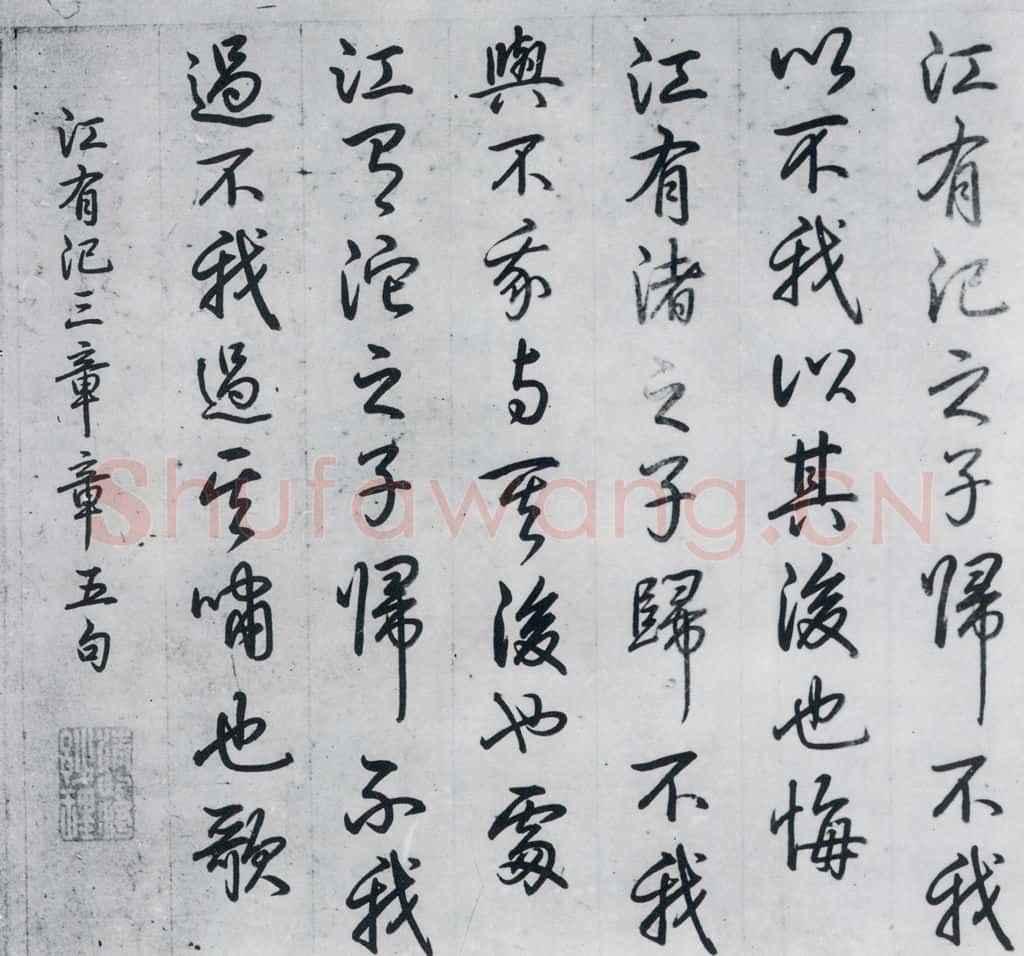 江有汜之子帰不我
以不我以其後也悔
江有渚之子歸不我
與不我与其後也處
江有沱之子帰不我
過不我過其嘯也歌
江有汜三章章五句
Shufawang.CN